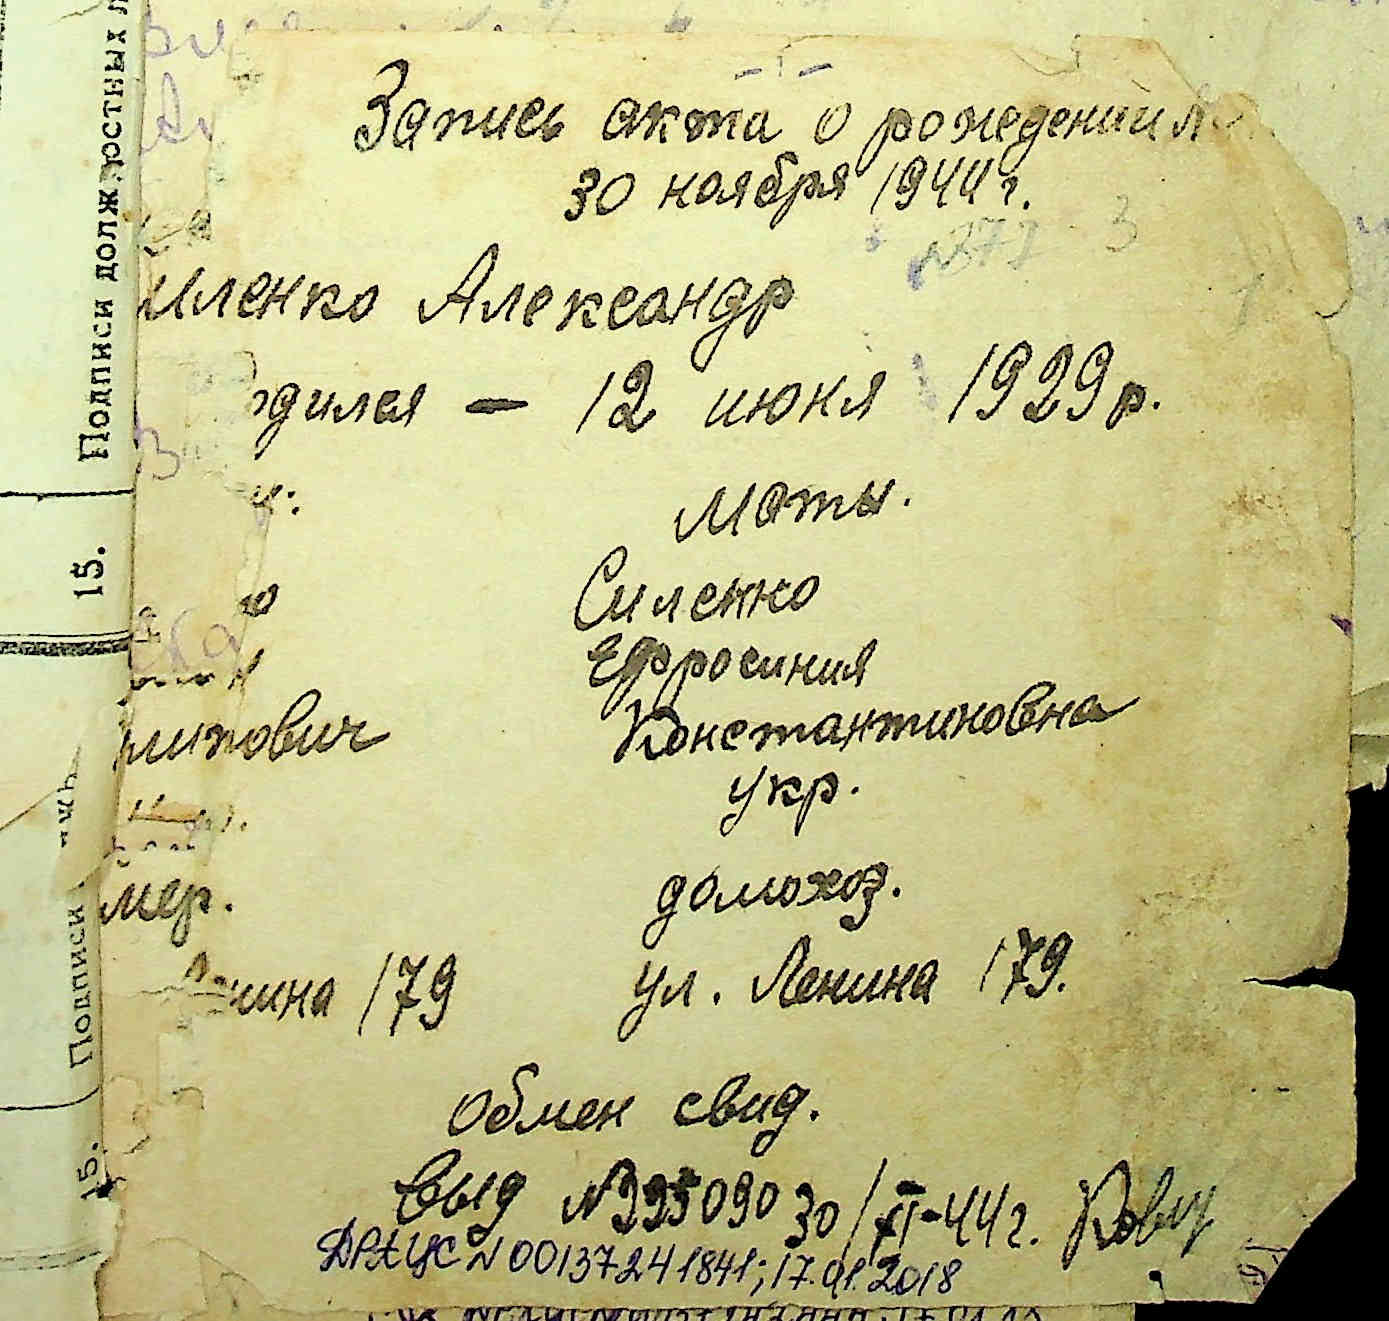 Подписи должностных
15.
Подписи
15.
Запись акта о рождении №
30 ноября 1944 г.
3
иленко Александр
одился — 12 июня 1929 р.
ц: Мать.
о Силенко
Ефросиния
липович Константиновна
укр.
мер. домохоз.
Ленина 179 ул. Ленина 179.
Обмен свид.
Выд № 995090 30/XI-44 г.
ДРАЦС N 00137241841; 17.01.2018